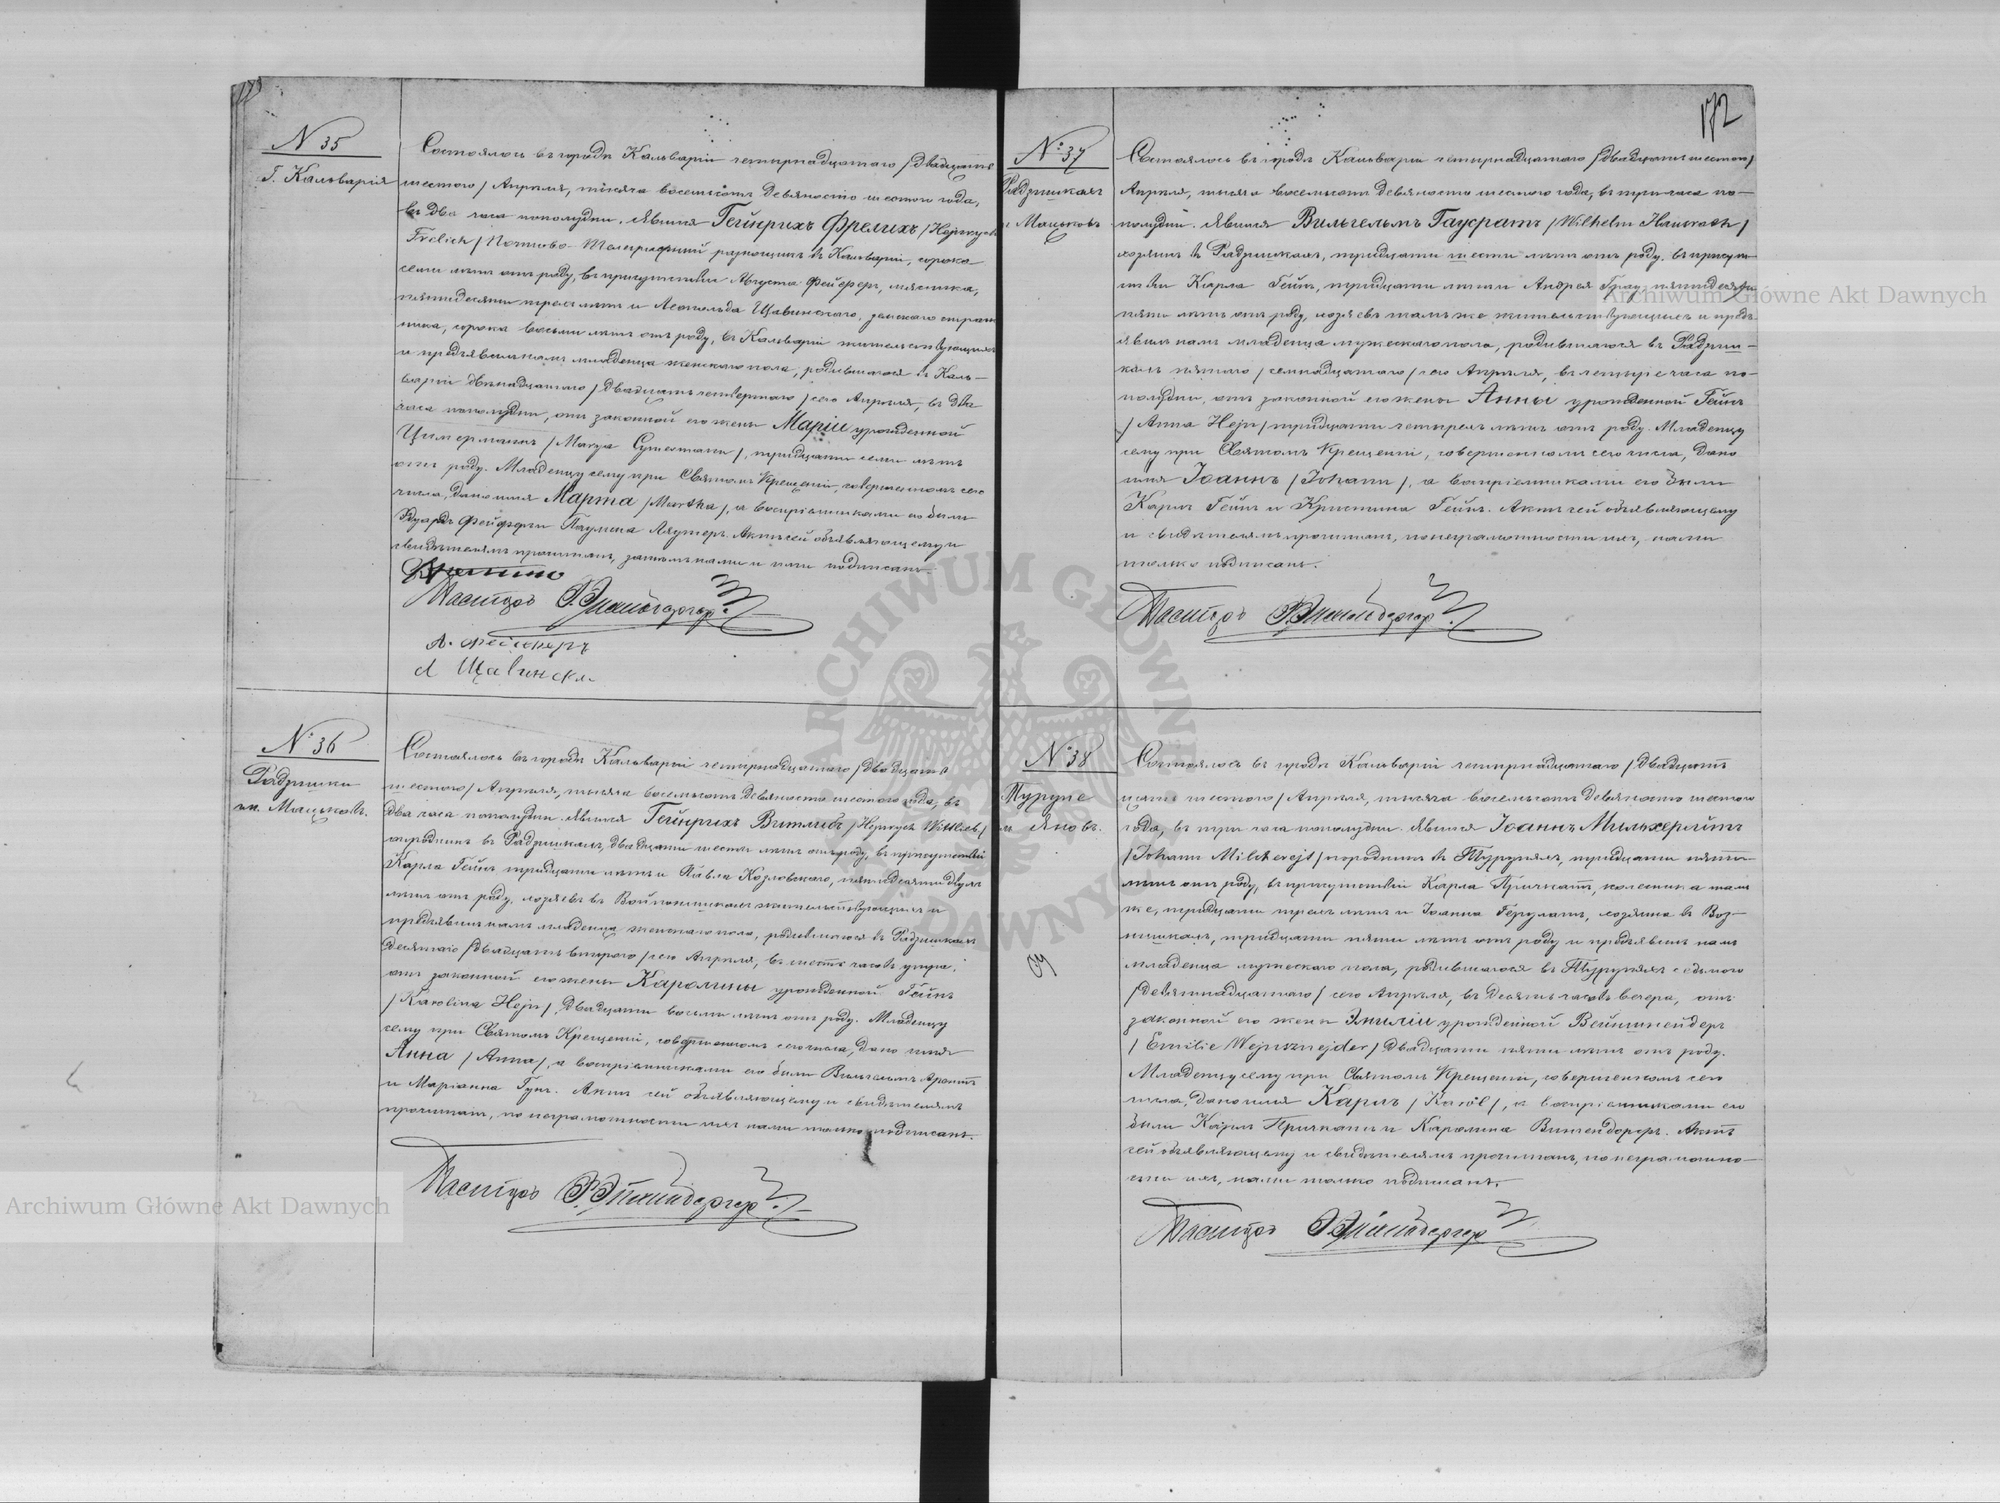 172
N 35
Г. Кальварія
Состоялось въ городѣ Кальваріи четырнадцатаго /двадцать
шестого/ Апрѣля, тысяча восемьсотъ девяносто шестого года,
въ два часа пополудни. Явился Гейнрихъ Фрелихъ /Henryk
Frelich/ Почтово-Телеграфный разнощикъ въ Кальваріи, сорока
семи лѣтъ отъ роду, въ присутствіи Августа Фейферъ, мясника,
пятидесяти трехъ лѣтъ и Леопольда Щавинскаго, земскаго страж
ника, сорока восьми лѣтъ отъ роду, въ Кальваріи жительствующихъ
и предъявилъ намъ младенца женскаго пола, родившагося въ Каль-
варіи двѣнадцатаго /двадцать четвертаго/ сего Апрѣля, въ два
часа пополудни, отъ законной его жены Маріи урожденной
Цимерманъ /Marya /, тридцати семи лѣтъ
отъ роду. Младенцу сему при Святомъ Крещеніи, совершенномъ сего
числа, дано имя Марта /Martha/, а воспріемниками его были
Эдуардъ Фейферъ и Паулина Ляутеръ. Актъ сей объявляющему и
свидѣтелямъ прочитанъ, затѣмъ нами и ими подписанъ.
Пасторъ
А. Фейферъ
Л Щавинскі
N 36
Радзишки
гм. Мацковъ.
Состоялось въ городѣ Кальваріи четырнадцатаго /двадцать
шестого/ Апрѣля, тысяча восемьсотъ девяносто шестого года, въ
два часа пополудни. Явился Гейнрихъ Витлибъ /Henryk Wittlieb/
огородникъ въ Радзишкахъ, двадцати шести лѣтъ отъ роду, въ присутствіи
Карла Гейнъ тридцати лѣтъ и Павла Козловскаго, пятидесяти двухъ
лѣтъ отъ роду, хозяевъ въ жительствующихъ и
предъявилъ намъ младенца женскаго пола, родившагося въ Радзишкахъ
десятаго /двадцать второго/ сего Апрѣля, въ шесть часовъ утра,
отъ законной его жены Каролины урожденной Гейнъ
/Karolina Hejn/, двадцати восьми лѣтъ отъ роду. Младенцу
сему при Святомъ Крещеніи, совершенномъ сего числа, дано имя
Анна /Anna/, а воспріемниками его были Вильгельмъ Арентъ
и Маріанна Гунъ. Актъ сей объявляющему и свидѣтелямъ
прочитанъ, по неграмотности ихъ нами только подписанъ.
Пасторъ
N 37
Радзишкахъ
Мацковъ
Состоялось въ городѣ Кальваріи четырнадцатаго /двадцать шестого/
Апрѣля, тысяча восемьсотъ девяносто шестого года, въ три часа по-
полудни. Явился Вильгельмъ Гаусратъ /Wilhelm Hausrath/
хозяинъ въ Радзишкахъ, тридцати шести лѣтъ отъ роду, въ присут-
ствіи Карла Гейнъ, тридцати лѣтъ и Андрея Грау, пятидесяти
пяти лѣтъ отъ роду, хозяевъ тамъ же жительствующихъ и предъ-
явилъ намъ младенца мужескаго пола, родившагося въ Радзиш-
кахъ пятаго /семнадцатаго/ сего Апрѣля, въ четыре часа по-
полудни, отъ законной его жены Анны урожденной Гейнъ
/Anna Hejn/ тридцати четырехъ лѣтъ отъ роду. Младенцу
сему при Святомъ Крещеніи, совершенномъ сего числа, дано
имя Іоаннъ /Johann/, а воспріемниками его были
Карлъ Гейнъ и Христина Гейнъ. Актъ сей объявляющему
и свидѣтелямъ прочитанъ, по неграмотности ихъ, нами
только подписанъ.
Пасторъ
N 38
Пурупе
Яновъ.
Состоялось въ городѣ Кальваріи четырнадцатаго /двадцать
шестого/ Апрѣля, тысяча восемьсотъ девяносто шестого
года, въ три часа пополудни. Явился Іоаннъ Мильхерейтъ
/Johann Milcherejt/ огородникъ въ тридцати пяти
лѣтъ отъ роду, въ присутствіи Карла Причкатъ, колесника тамъ
же, тридцати трехъ лѣтъ и Іоанна хозяина въ Воз-
нишкахъ, тридцати пяти лѣтъ отъ роду и предъявилъ намъ
младенца мужескаго пола, родившагося въ седьмого
/девятнадцатаго/ сего Апрѣля, въ десять часовъ вечера, отъ
законной его жены Эмиліи урожденной Вейшнейдеръ
/Emilie Wejsznejder/ двадцати пяти лѣтъ отъ роду.
Младенцу сему при Святомъ Крещеніи, совершенномъ сего
числа, дано имя Карлъ /Karol/, а воспріемниками его
были Карлъ Причкатъ и Каролина Витендорфъ. Актъ
сей объявляющему и свидѣтелямъ прочитанъ, по неграмотно-
сти ихъ, нами только подписанъ.
Пасторъ
Archiwum Główne Akt Dawnych
Archiwum Główne Akt Dawnych
ARCHIWUM GŁÓWNE AKT DAWNYCH